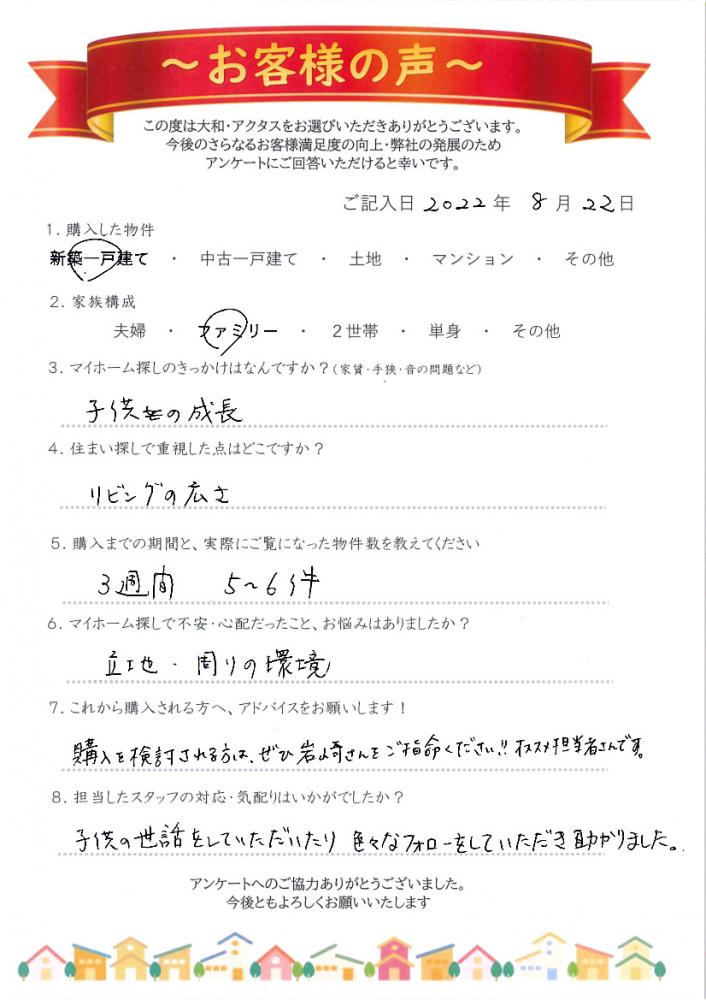 ～お客様の声～
この度は大和・アクタスをお選びいただきありがとうございます。
今後のさらなるお客様満足度の向上・弊社の発展のため
アンケートにご回答いただけると幸いです。
ご記入日 2022年 8月 22日
1. 購入した物件
新築一戸建て ・ 中古一戸建て ・ 土地 ・ マンション ・ その他
2. 家族構成
夫婦 ・ ファミリー ・ 2世帯 ・ 単身 ・ その他
3. マイホーム探しのきっかけはなんですか？(家賃・手狭・音の問題など)
子供の成長
4. 住まい探しで重視した点はどこですか？
リビングの広さ
5. 購入までの期間と、実際にご覧になった物件数を教えてください
3週間 5～6件
6. マイホーム探しで不安・心配だったこと、お悩みはありましたか？
立地・周りの環境
7. これから購入される方へ、アドバイスをお願いします！
購入を検討される方は、ぜひ岩崎さんをご指命ください!! オススメ担当者さんです。
8. 担当したスタッフの対応・気配りはいかがでしたか？
子供の世話をしていただいたり 色々なフォローをしていただき助かりました。
アンケートへのご協力ありがとうございました。
今後ともよろしくお願いいたします